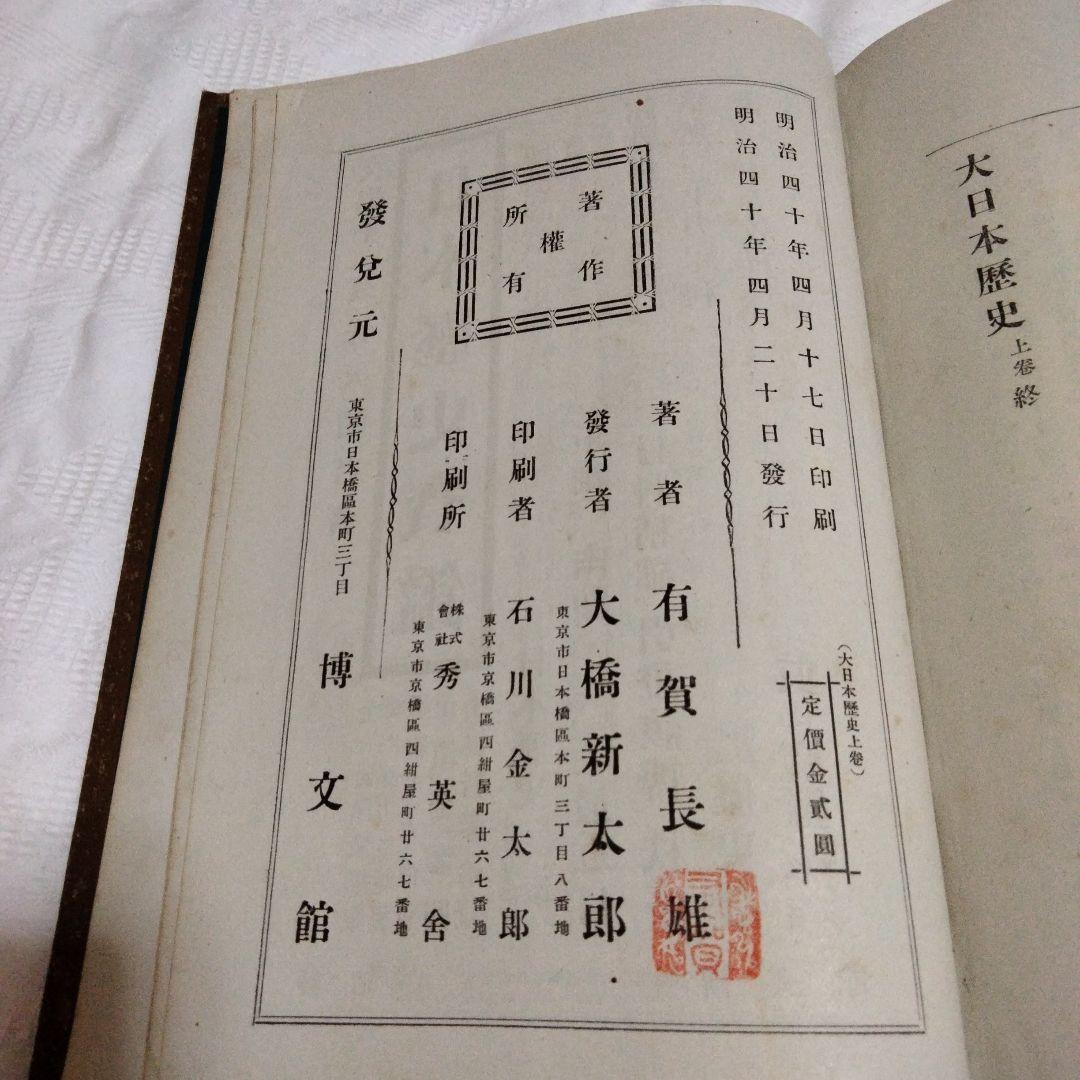 大日本歷史上卷終
明治四十年四月十七日印刷
明治四十年四月二十日發行
（大日本歷史上卷）
定價金貳圓
著作權所有
著者 有賀長雄
發行者 大橋新太郎
東京市日本橋區本町三丁目八番地
印刷者 石川金太郎
東京市京橋區四紺屋町廿六七番地
印刷所 株式會社秀英舍
東京市京橋區四紺屋町廿六七番地
發兌元 東京市日本橋區本町三丁目 博文館